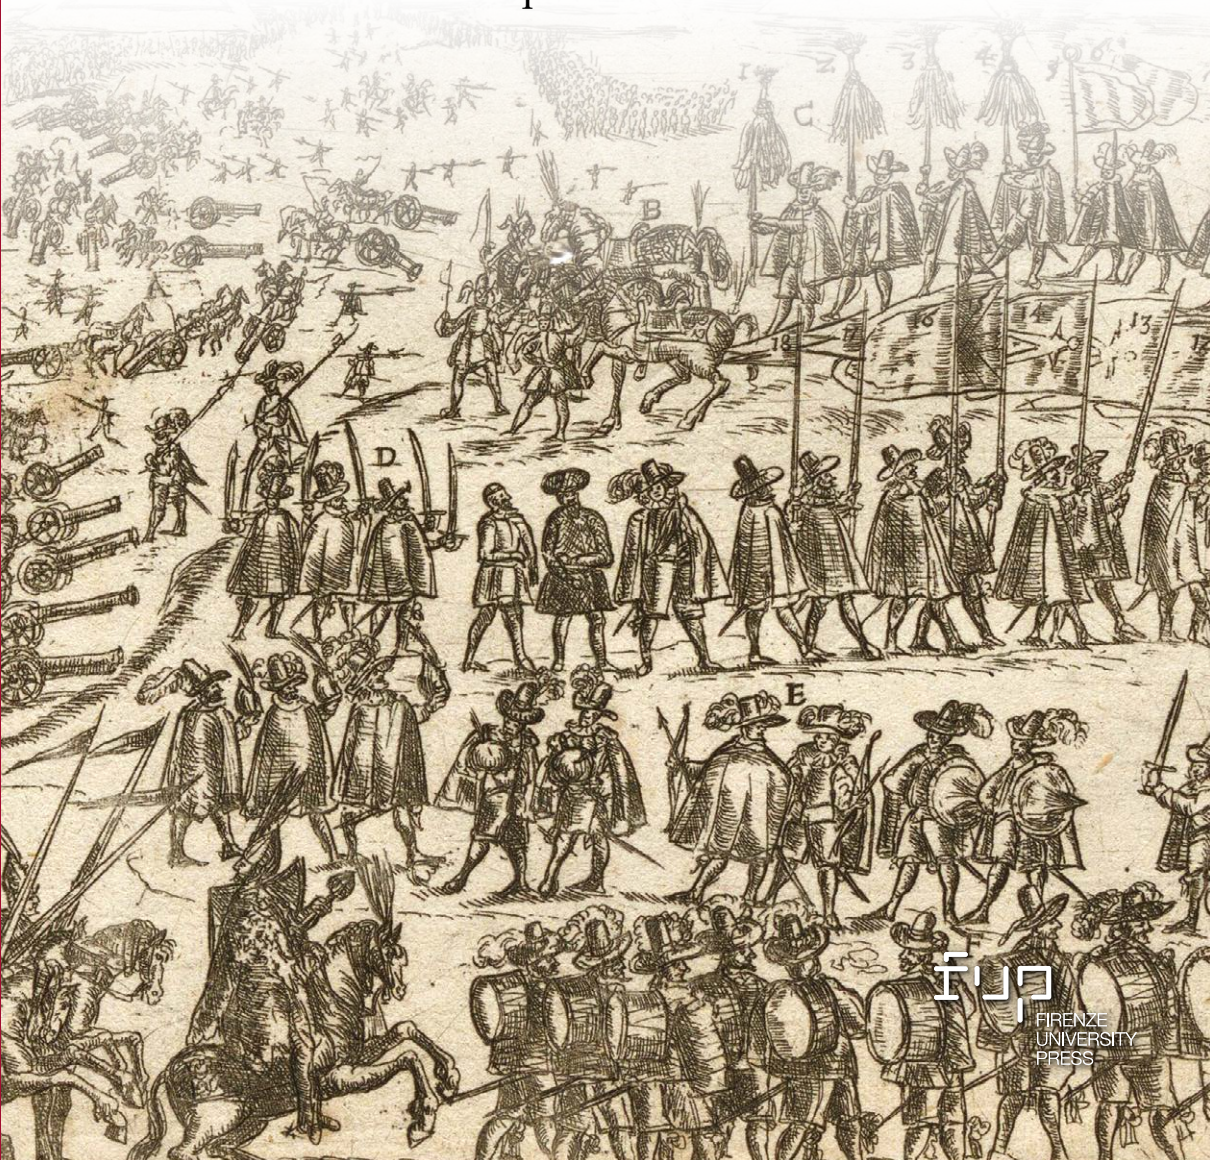 1
2
3
4
5
6
C
B
16
14
13
12
18
17
D
E
F
fup
FIRENZE
UNIVERSITY
PRESS